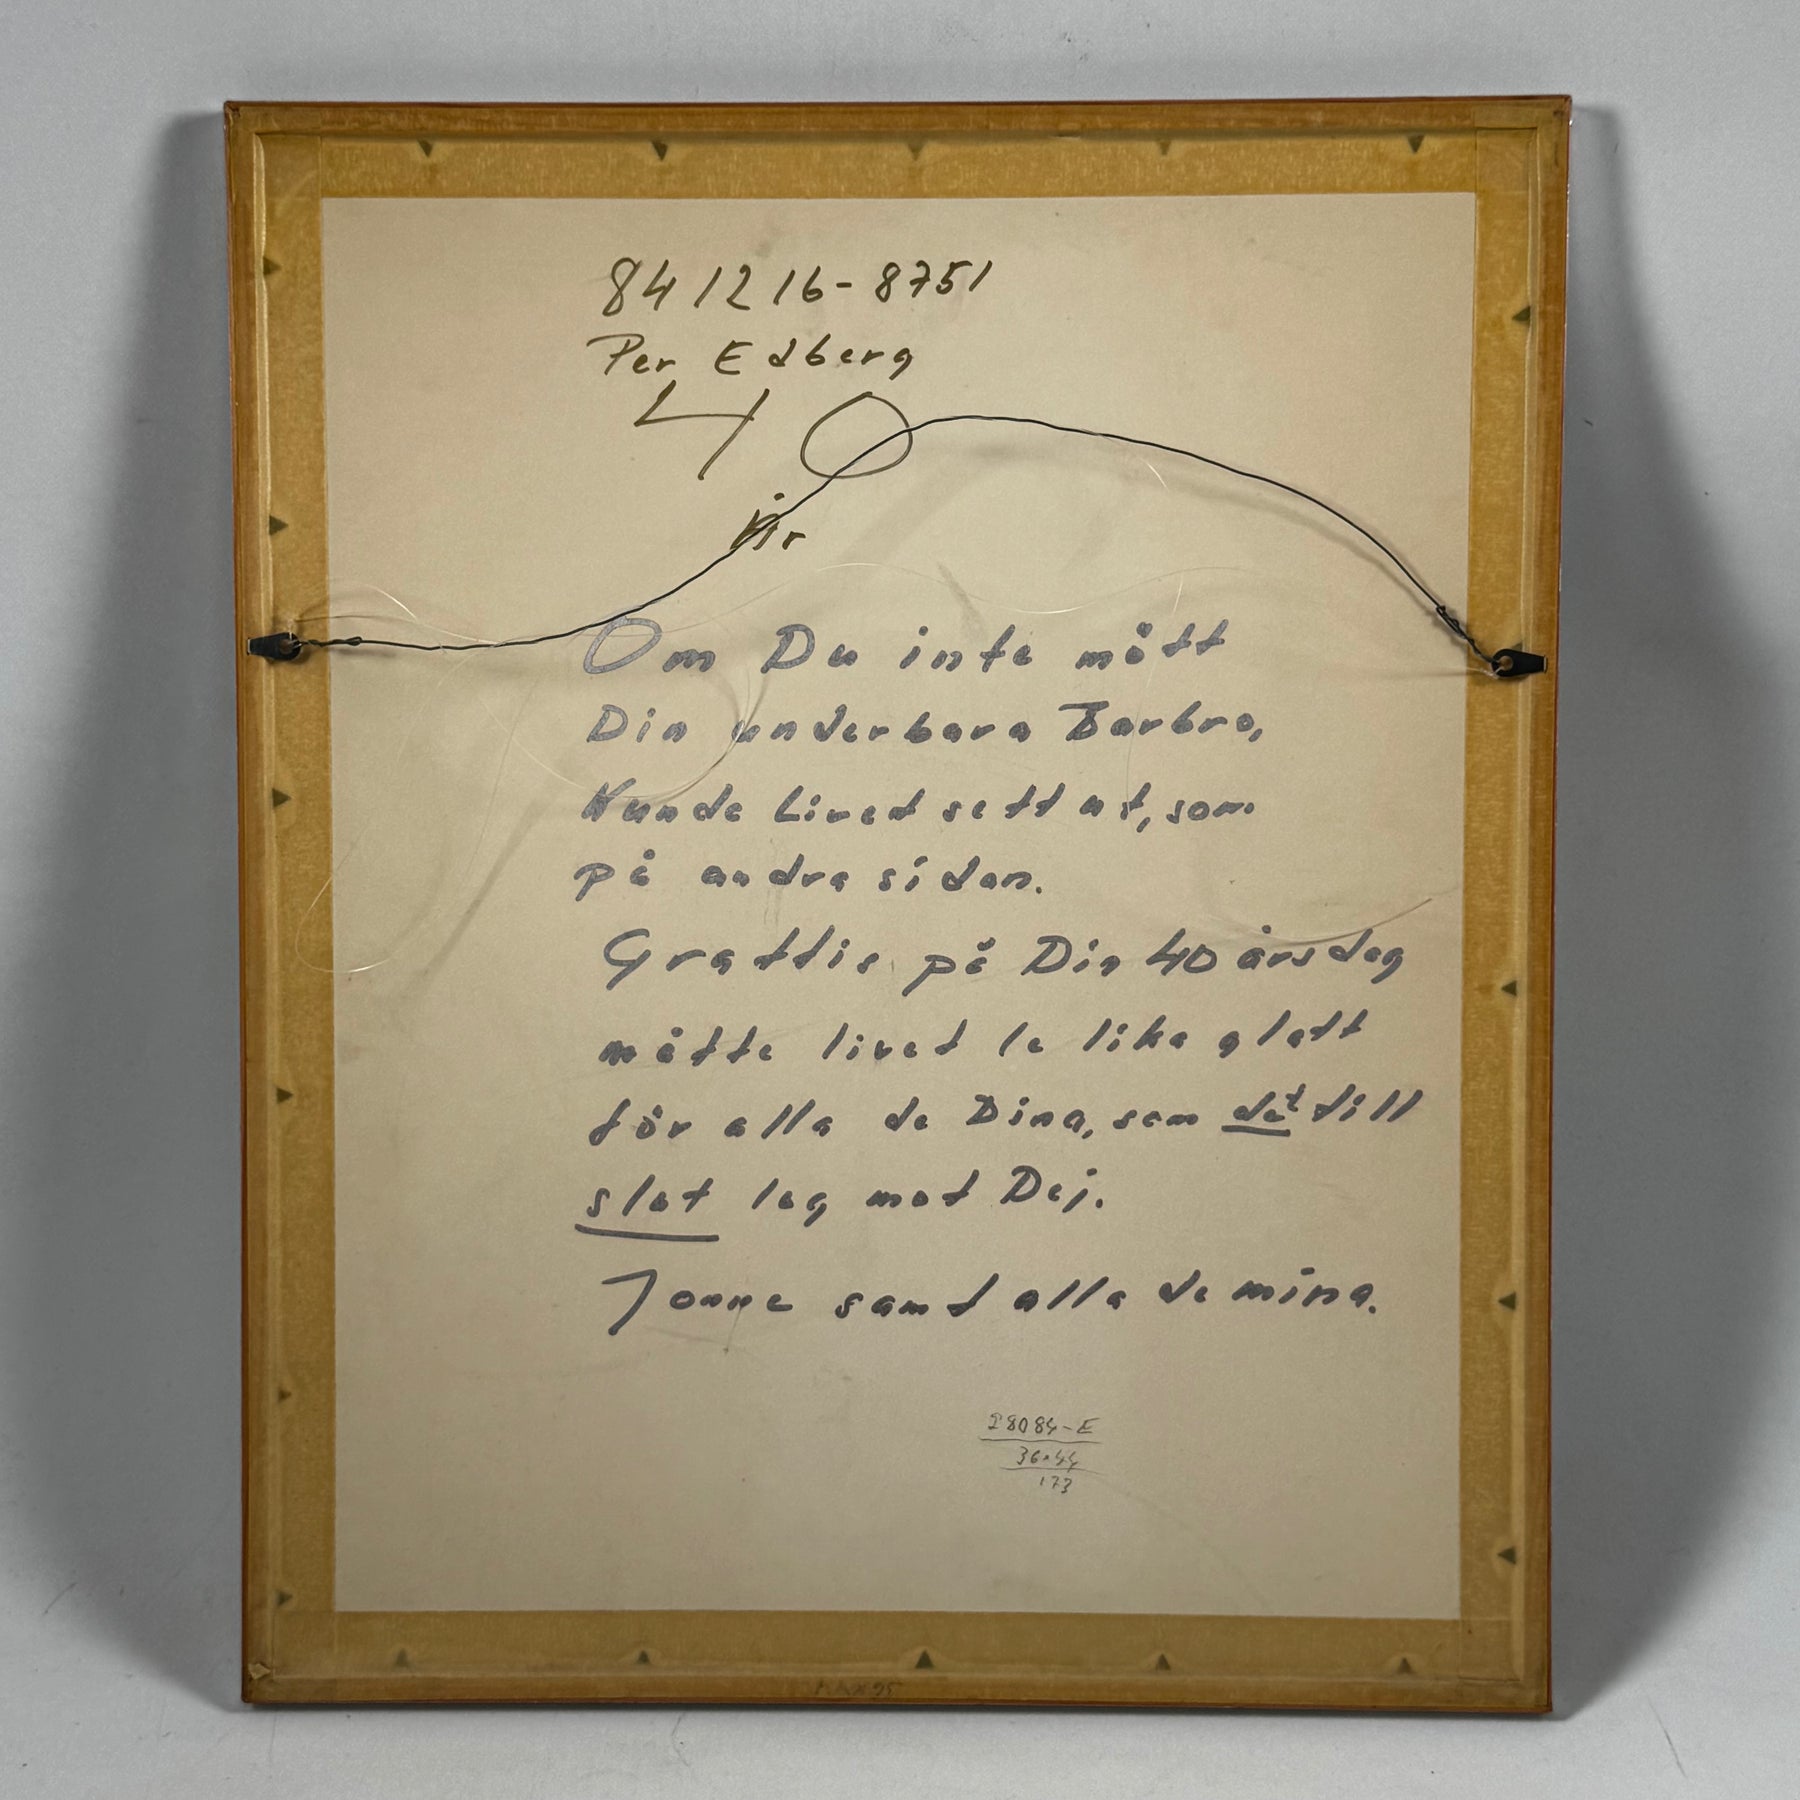 841216-8751
Per Edberg
40
år
Om Du inte mött
Din underbara Barbro,
Kunde Livet sett ut, som
på andra sidan.
Grattis på Din 40 årsdag
måtte livet le lika glatt
för alla de Dina, som det till
slut log mot Dej.
Jonne samt alla de mina.
28084-E
36×44
173